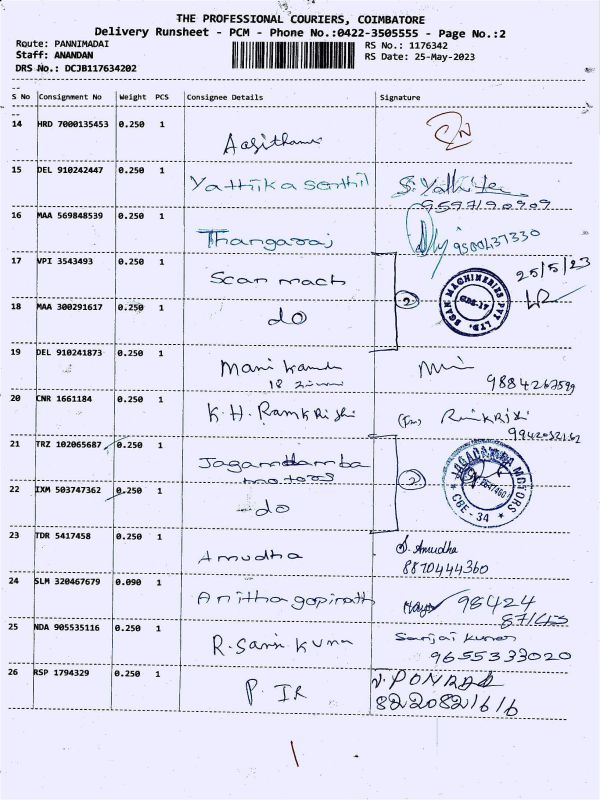 THE PROFESSIONAL COURIERS, COIMBATORE
Delivery Runsheet - PCM - Phone No.:0422-3505555 - Page No.:2
Route: PANNIMADAI RS No.: 1176342
Staff: ANANDAN RS Date: 25-May-2023
DRS No.: DCJB117634202
S No Consignment No Weight PCS Consignee Details Signature
14 HRD 7000135453 0.250 1
15 DEL 910242447 0.250 1 Yathika Senthil S. Yathika
9597190909
16 MAA 569848539 0.250 1 Thangaraj 9500437330
17 VPI 3543493 0.250 1 Scan mach 2 25/5/23
18 MAA 300291617 0.250 1 do
MACHINERIES PVT LTD.
19 DEL 910241873 0.250 1 Mani
18 9884267599
20 CNR 1661184 0.250 1 K.H. Ramkrishi Ramkrishi
21 TRZ 102065687 0.250 1 Jaganndamba 2
motors
JAGADAMBA MOTORS
CBE - 34
22 IXM 503747362 0.250 1 do
23 TDR 5417458 0.250 1 Amudha S. Amudha
8870444360
24 SLM 320467679 0.090 1 Anitha gopinath 98424
25 NDA 905535116 0.250 1 R. Sanjai Kumar Sanjai Kumar
9655333020
26 RSP 1794329 0.250 1 P. IR V. PONRAJ
8220821616